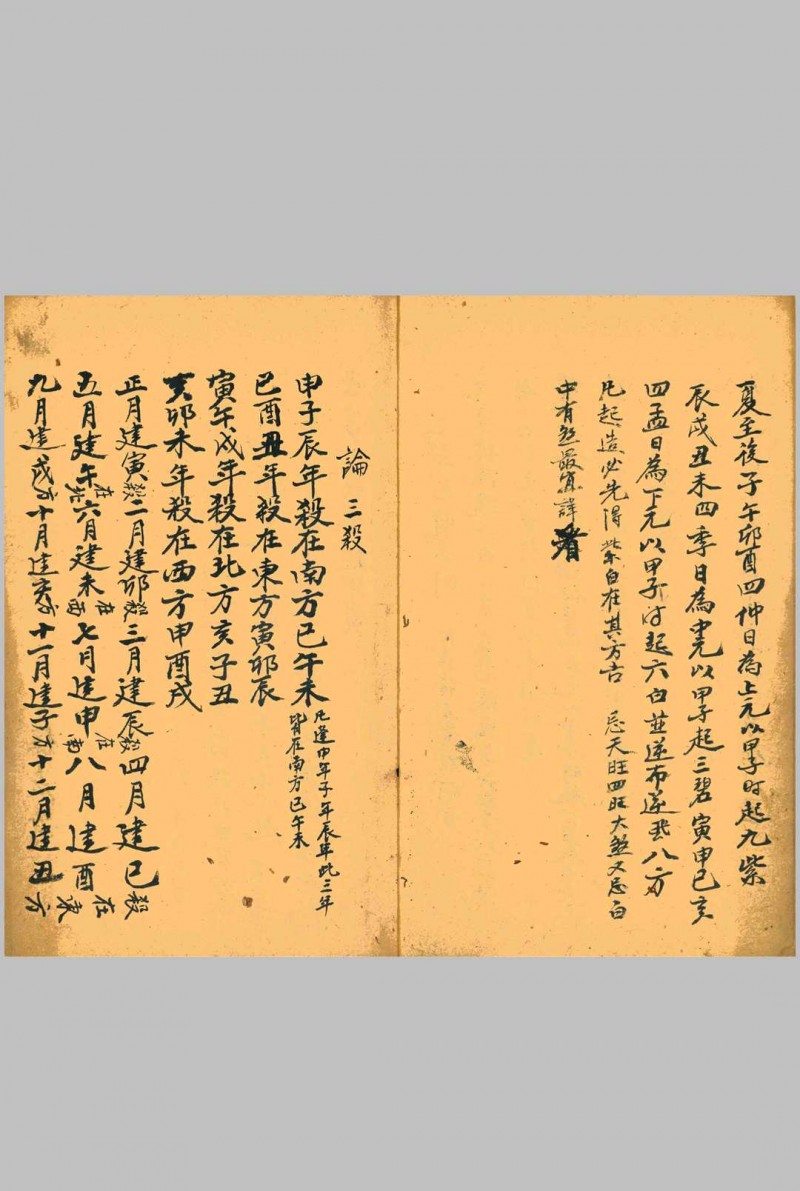 夏至後子午卯酉四仲日為上元以甲子时起九紫
辰戌丑未四季日為中元以甲子起三碧寅申巳亥
四孟日為下元以甲子时起六白並逆布遂飛八方
凡起造必先得紫白在其方吉 忌天旺四旺大煞又忌白
中有煞最宜詳看
論三殺
申子辰年殺在南方巳午未
凡逢申年子年辰年此三年
皆在南方巳午未
巳酉丑年殺在東方寅卯辰
寅午戌年殺在北方亥子丑
亥卯未年殺在西方申酉戌
正月建寅殺二月建卯殺三月建辰殺四月建巳殺
五月建午在北六月建未在西七月建申在南八月建酉在東
九月建戌方十月建亥方十一月建子方十二月建丑方